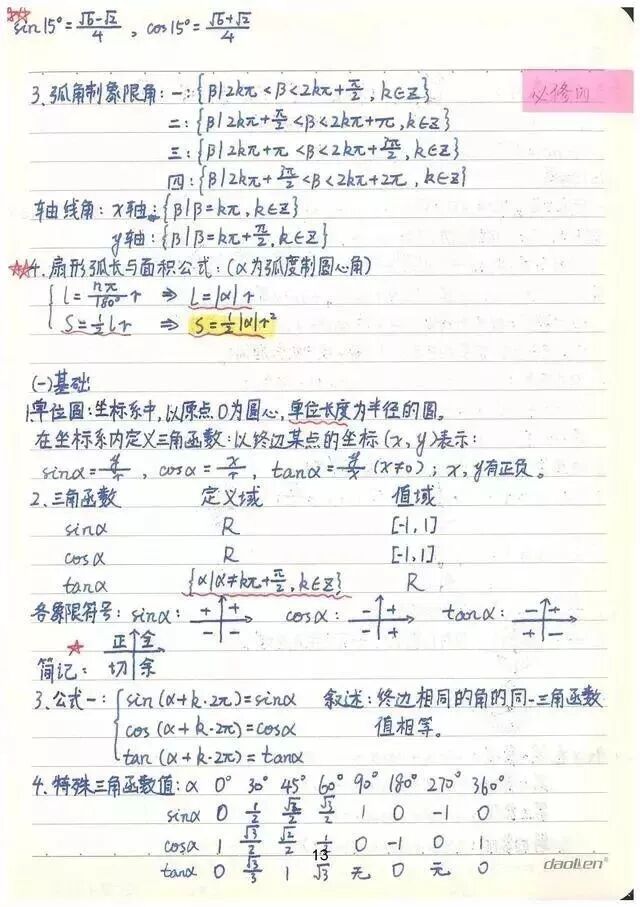 sin15°=(√6-√2)/4 , cos15°=(√6+√2)/4
必修四
3.弧角制象限角：一：{β|2kπ<β<2kπ+π/2,k∈Z}
二：{β|2kπ+π/2<β<2kπ+π,k∈Z}
三：{β|2kπ+π<β<2kπ+3π/2,k∈Z}
四：{β|2kπ+3π/2<β<2kπ+2π,k∈Z}
轴线角：x轴：{β|β=kπ,k∈Z}
y轴：{β|β=kπ+π/2,k∈Z}
4.扇形弧长与面积公式：(α为弧度制圆心角)
l=nπ/180° r ⇒ L=|α|r
S=1/2 lr ⇒ S=1/2|α|r²
(一)基础
1.单位圆：坐标系中,以原点O为圆心,单位长度为半径的圆。
在坐标系内定义三角函数：以终边某点的坐标(x,y)表示：
sinα=y/r , cosα=x/r , tanα=y/x (x≠0)；x,y有正负。
2.三角函数 定义域 值域
sinα R [-1,1]
cosα R [-1,1]
tanα {α|α≠kπ+π/2,k∈Z} R
各象限符号：sinα：+ + - - cosα：- + - + tanα：- + + -
简记：正 全 切 余
3.公式一：sin(α+k·2π)=sinα 叙述：终边相同的角的同一三角函数
cos(α+k·2π)=cosα 值相等。
tan(α+k·2π)=tanα
4.特殊三角函数值：α 0° 30° 45° 60° 90° 180° 270° 360°
sinα 0 1/2 √2/2 √3/2 1 0 -1 0
cosα 1 √3/2 √2/2 1/2 0 -1 0 1
13
tanα 0 √3/3 1 √3 无 0 无 0
daoLen®